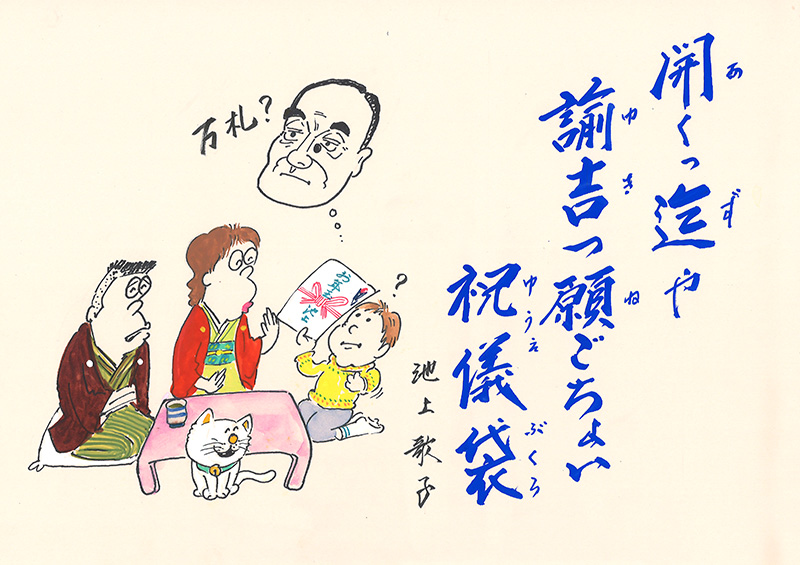 開くっ迄や
あ ず
諭吉っ願ごちょい
ゆ き ね
祝儀袋
ゆうえ ぶくろ
池上歌子
万札?
?
お年玉